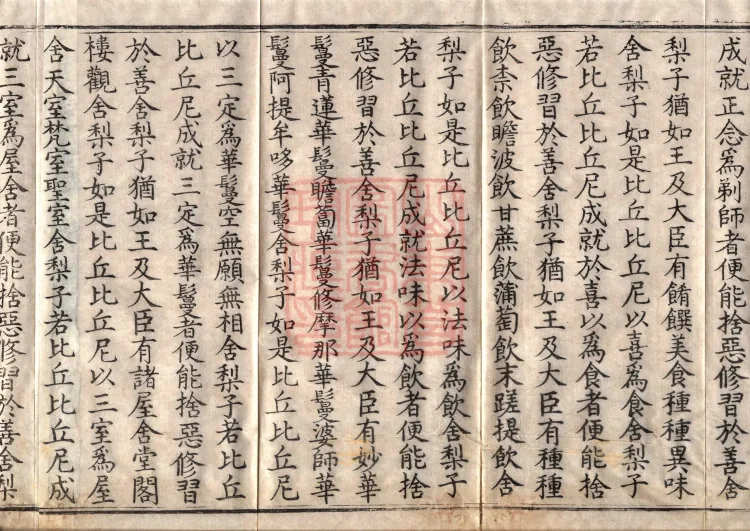 成就正念爲剃師者便能捨惡修習於善舍
梨子猶如王及大臣有餚饌美食種種異味
舍梨子如是比丘比丘尼以喜爲食舍梨子
若比丘比丘尼成就於喜以爲食者便能捨
惡修習於善舍梨子猶如王及大臣有種種
飲柰飲瞻波飲甘蔗飲蒲萄飲末蹉提飲舍
梨子如是比丘比丘尼以法味爲飲舍梨子
若比丘比丘尼成就法味以爲飲者便能捨
惡修習於善舍梨子猶如王及大臣有妙華
鬘青蓮華鬘瞻蔔華鬘修摩那華鬘婆師華
鬘阿提牟哆華鬘舍梨子如是比丘比丘尼
以三定爲華鬘空無願無相舍梨子若比丘
比丘尼成就三定爲華鬘者便能捨惡修習
於善舍梨子猶如王及大臣有諸屋舍堂閣
樓觀舍梨子如是比丘比丘尼以三室爲屋
舍天室梵室聖室舍梨子若比丘比丘尼成
就三室爲屋舍者便能捨惡修習於善舍梨